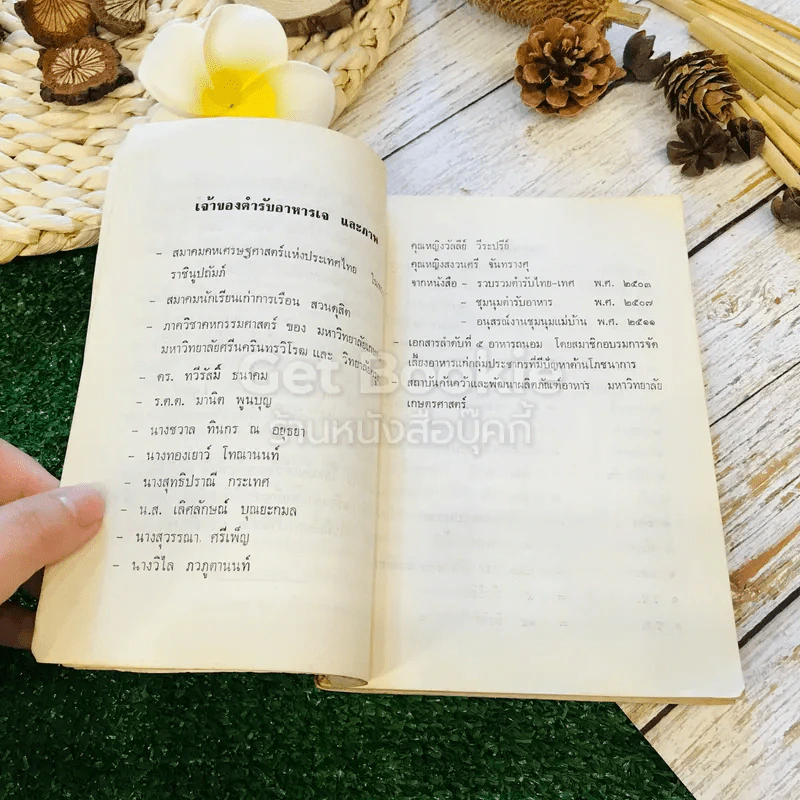 เจ้าของตำรับอาหารเจ และภาพ
- สมาคมคหเศรษฐศาสตร์แห่งประเทศไทย ในพระ
ราชินูปถัมภ์
- สมาคมนักเรียนเก่าการเรือน สวนดุสิต
- ภาควิชาคหกรรมศาสตร์ ของ มหาวิทยาลัย
มหาวิทยาลัยศรีนครินทรวิโรฒ และ วิทยาลัย
- ดร. ทวีรัสมิ์ ธนาคม
- ร.ต.ต. มานิต พูนบุญ
- นางชวาล ทินกร ณ อยุธยา
- นางทองเยาว์ โทณานนท์
- นางสุทธิปราณี กระเทศ
- น.ส. เลิศลักษณ์ บุณยะกมล
- นางสุวรรณา ศรีเพ็ญ
- นางวิไล ภวภูตานนท์
คุณหญิงวัลลีย์ วีระปรีย์
คุณหญิงสงวนศรี จันทรางศุ
จากหนังสือ - รวบรวมตำรับไทย-เทศ พ.ศ. ๒๕๐๓
- ชุมนุมตำรับอาหาร พ.ศ. ๒๕๐๗
- อนุสรณ์งานชุมนุมแม่บ้าน พ.ศ. ๒๕๑๑
- เอกสารลำดับที่ ๕ อาหารถนอม โดยสมาชิกอบรมการจัด
เลี้ยงอาหารแก่กลุ่มประชากรที่มีปัญหาด้านโภชนาการ
สถาบันค้นคว้าและพัฒนาผลิตภัณฑ์อาหาร มหาวิทยาลัย
เกษตรศาสตร์
Get Bookie
ร้านหนังสือบุ๊คกี้